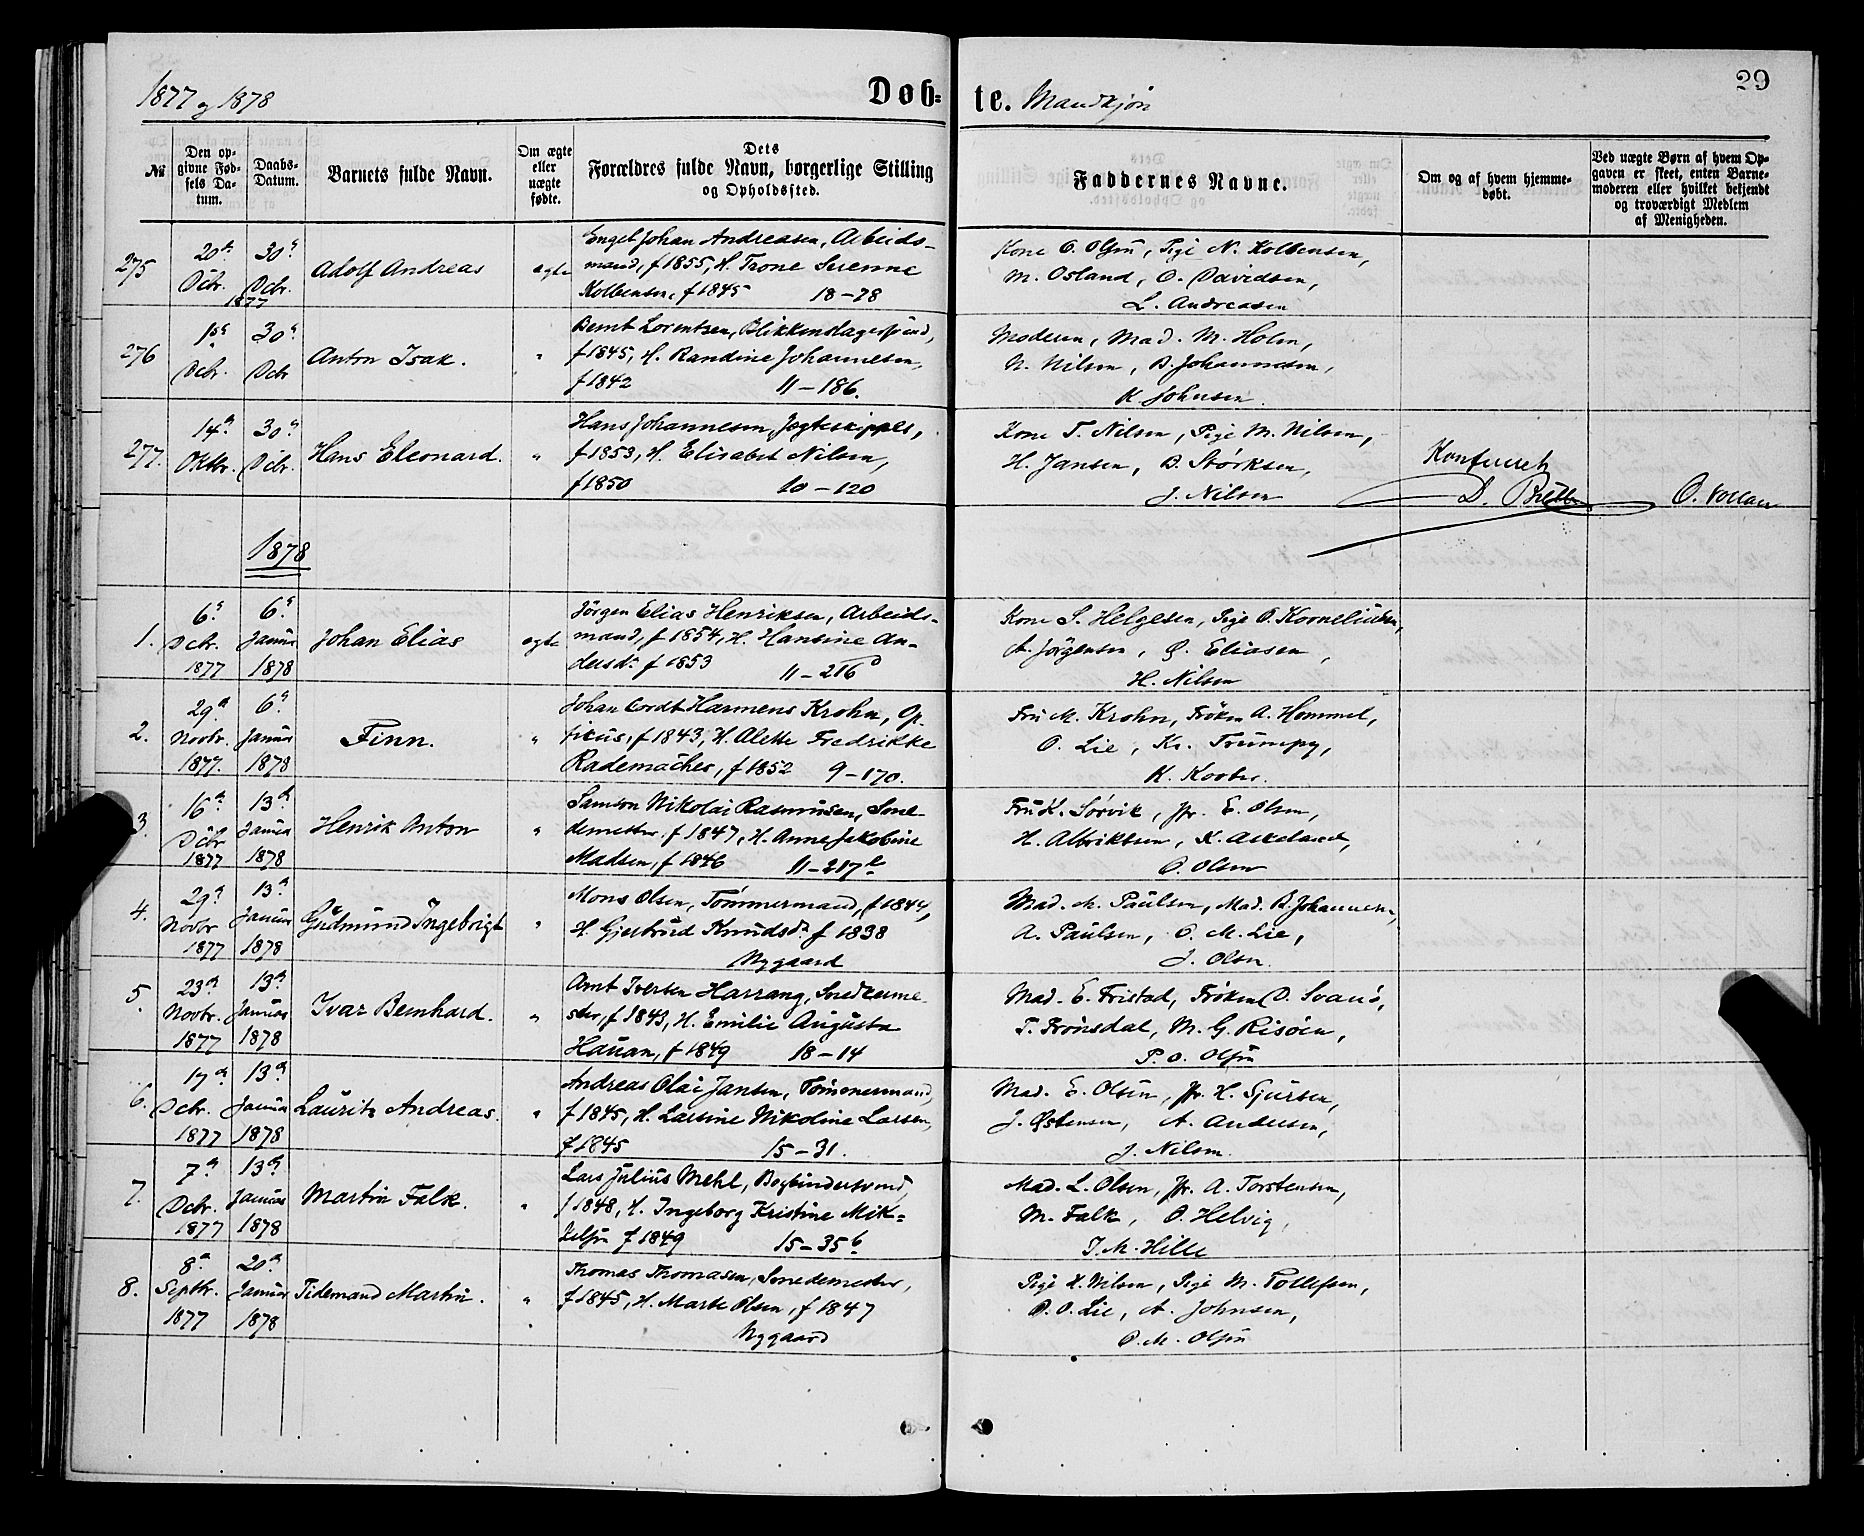 1877 og 1878
Døb-
te. Mandkjøn
29
No
Den op-
givne Fød-
sels Da-
tum.
Daabs-
Datum.
Barnets fulde Navn.
Om ægte
eller
uægte
fødte.
Dets
Forældres fulde Navn, borgerlige Stilling
og Opholdssted.
Faddernes Navne.
Om og af hvem hjemme-
døbt.
Ved uægte Børn af hvem Op-
gaven er skeet, enten Barne-
moderen eller hvilket bekjendt
og troværdigt Medlem
af Menigheden.
275
20de
Dcbr.
1877
30te
Dcbr.
Adolf Andreas
egte
Engel Johan Andreasen, Arbeids-
mand, f 1855, H. Trone Serenne
Kolbensen, f 1845 18-78
Kone O. Olsen, Pige N. Kolbensen,
M. Osland, O. Davidsen,
L. Andreasen
276
1ste
Dcbr.
30te
Dcbr
Anton Isak.
"
Bernt Lorentzen, Blikkenslagersvend,
f 1845, H. Randine Johannesen,
f 1842 11-186.
Moderen, Mad. M. Holm,
N. Nilsen, B. Johannesen,
K. Johnsen.
277.
14de
Oktbr.
30te
Dcbr.
Hans Eleonard.
"
Hans Johannesen, Jegteskipper,
f 1853, H. Elisabet Nilsen,
f 1850 10-120
Kone T. Nilsen, Pige M. Nilsen,
H. Jansen, B. Størksen,
J. Nilsen
Konfereret
O. Vollan
1878
1.
6te
Dcbr.
1877
6te
Januar
1878
Johan Elias
egte
Jörgen Elias Henriksen, Arbeids-
mand, f 1854, H. Hansine An-
dersdr. f 1853 11-216d
Kone S. Helgesen, Pige O. Korneliusen,
A. Jörgensen, G. Eliasen,
H. Nilsen
2.
29de
Novbr.
1877.
6te
Januar
1878
Finn.
"
Johan Cordt Harmens Krohn, Op-
ticus, f 1843, H. Alette Fredrikke
Rademacher, f 1852 9-170.
Fru M. Krohn, Frøken A. Hommel,
O. Lie, Kr. Trumpy,
K. Koster.
3.
16de
Dcbr
1877
13de
Januar
1878
Henrik Anton
"
Samson Nikolai Rasmussen, Sme-
demester. f 1847, H. Anne Jakobine
Madsen, f 1846 11-217e
Fru K. Sørvik, Jfr. E. Olsen,
H. Albriktsen, K. Askeland,
O. Olsen
4.
29de
Novbr
1877
13de
Januar
1878
Gudmund Ingebrigt
"
Mons Olsen, Tömmermand, f 1844,
H. Gjertrud Knudsdr. f 1838
Nygaard
Mad. M. Paulsen, Mad. B. Johannesen,
A. Paulsen, O. M. Lie,
J. Olsen.
5
23de
Novbr.
1877
13de
Januar
1878
Ivar Bernhard.
"
Arnt Iversen Harrang, Snedkerme-
ster, f 1843, H. Emilie Augusta
Hauan, f 1849 18-14
Mad. E. Fristad, Frøken D. Svanø,
T. Frönsdal, M. G. Risöen,
P. O. Olsen
6.
17de
Dcbr.
1877
13de
Januar
1878
Lauritz Andreas.
"
Andreas Olai Jansen, Tömmermand,
f 1845, H. Larsine Nikoline Larsen,
f 1845 15-31.
Mad. E. Olsen, Jfr. H. Sjursen,
J. Østensen, A. Andersen,
J. Nilsen.
7.
7de
Dcbr.
1877
13de
Januar
1878
Martin Falk.
"
Lars Julius Mehl, Bogbindersvend,
f 1848, H. Ingeborg Kristine Mik-
kelsen f 1849 15-35b
Mad. L. Olsen, Jfr. A. Torstensen,
M. Falk, O. Helvig,
J. M. Hille
8.
8de
Septbr.
1877
20de
Januar
1878
Tidemand Martin.
"
Thomas Thomasen, Smedemester,
f 1845, H. Marte Olsen, f 1847
Nygaard
Pige K. Nilsen, Pige M. Tollefsen,
O. O. Lie, A. Johnsen,
O. M. Olsen